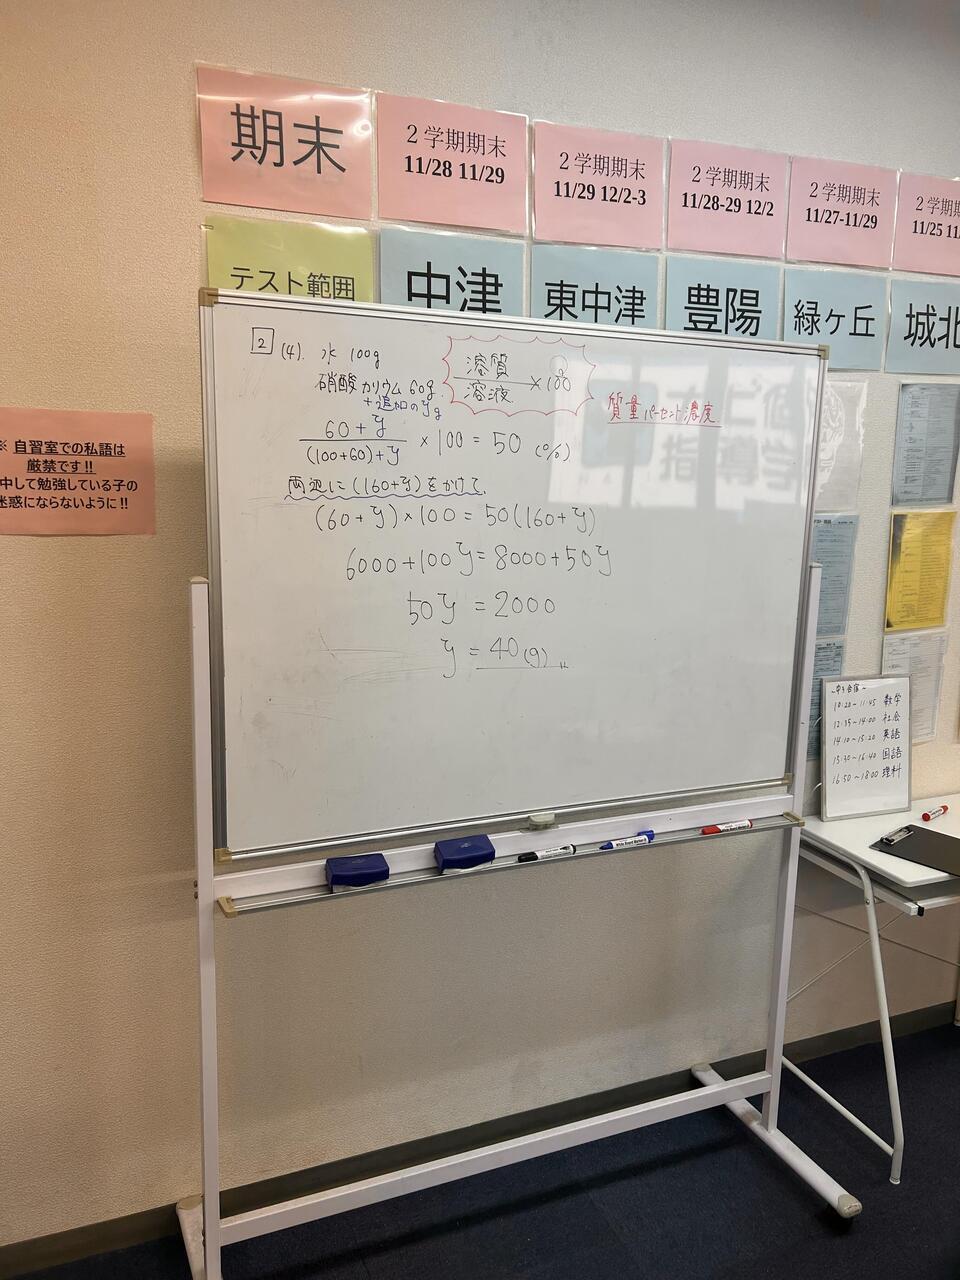 期末
2学期期末
11/28 11/29
2学期期末
11/29 12/2-3
2学期期末
11/28-29 12/2
2学期期末
11/27-11/29
2学期期
11/25 11
テスト範囲
中津
東中津
豊陽
緑ヶ丘
城北
※ 自習室での私語は
厳禁です!!
中して勉強している子の
迷惑にならないように!!
2 (4). 水 100g
硝酸カリウム 60g.
+追加のyg
溶質/溶液 × 100
質量パーセント濃度
(60+y)/((100+60)+y) × 100 = 50 (%)
両辺に(160+y)をかけて、
(60+y)×100=50(160+y)
6000+100y=8000+50y
50y=2000
y=40(g)〃
10:20~11:45 数学
12:35~14:00 社会
14:10~15:20 英語
15:30~16:40 国語
16:50~18:00 理科